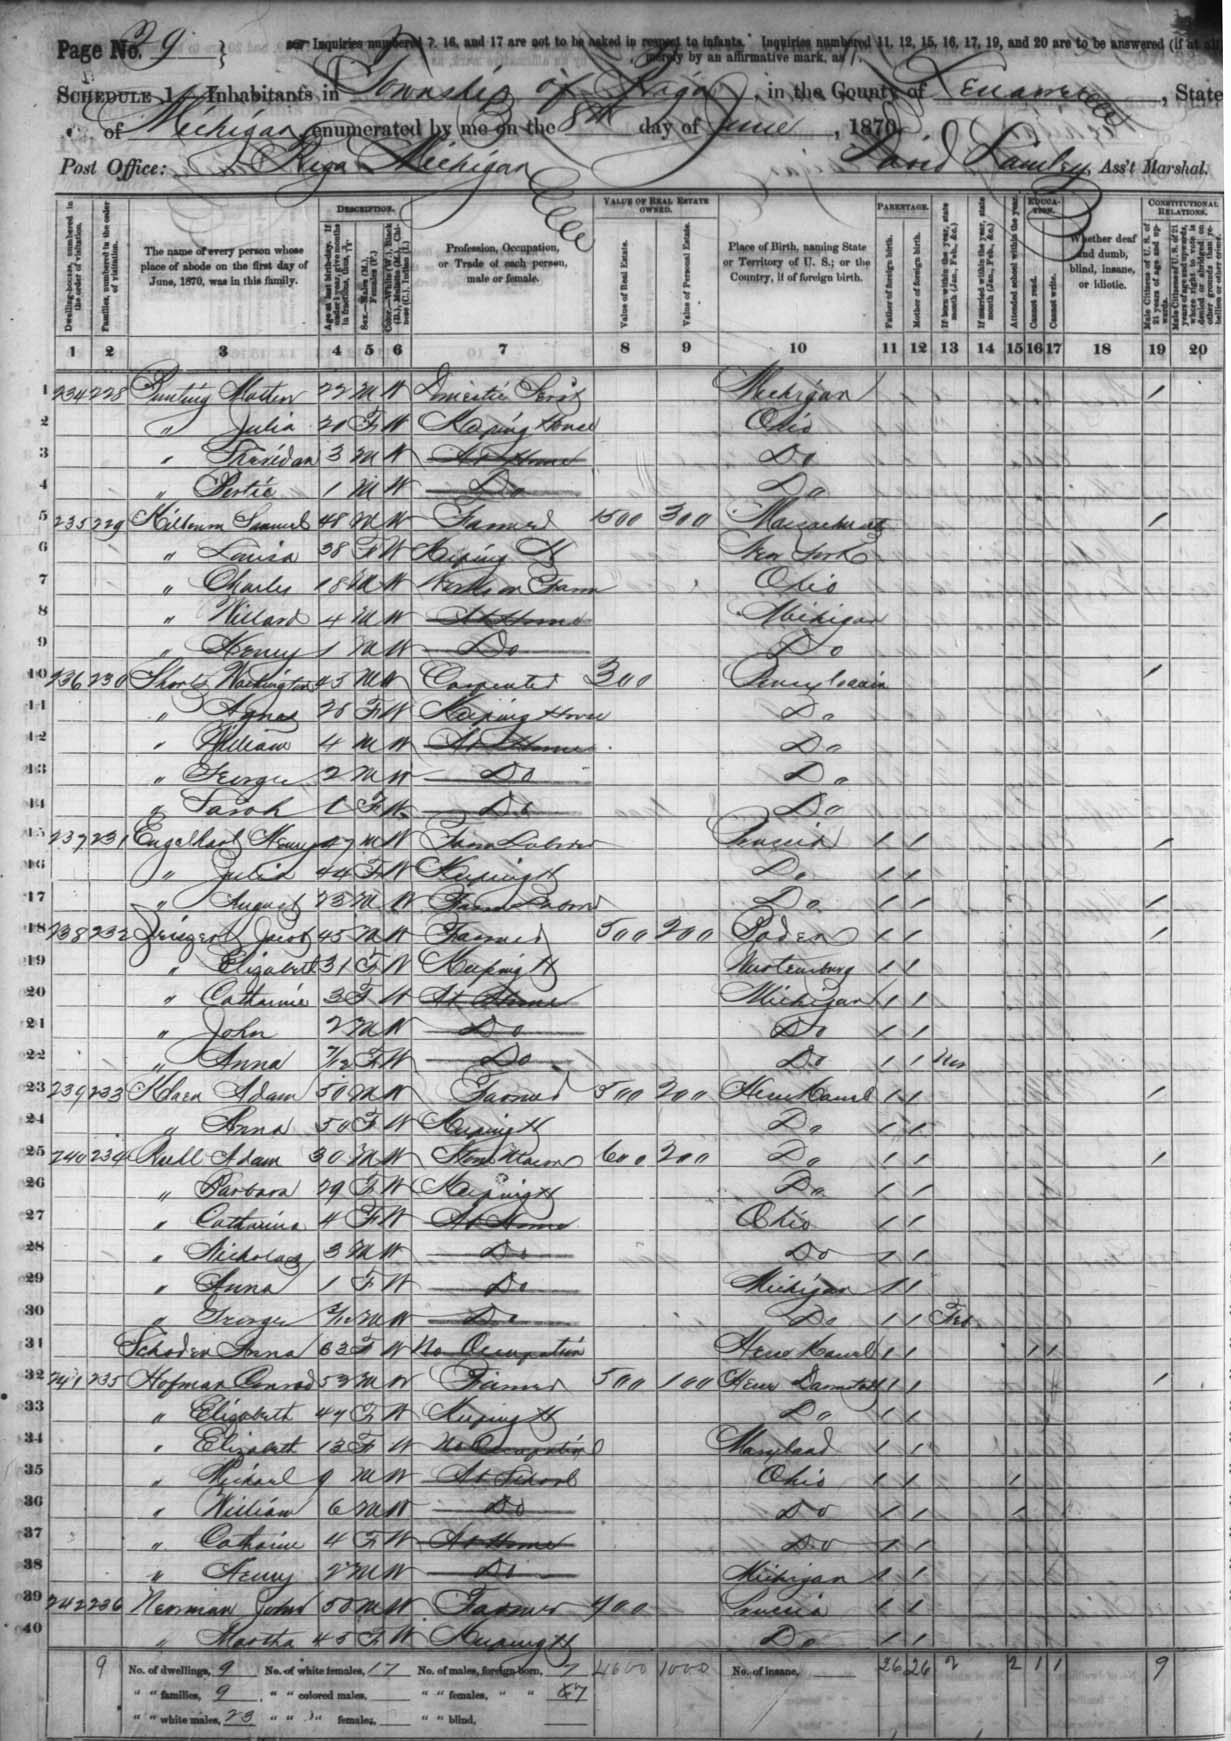 Page No. 29
Inquiries numbered 7, 16, and 17 are not to be asked in respect to infants. Inquiries numbered 11, 12, 15, 16, 17, 19, and 20 are to be answered (if at all)
merely by an affirmative mark, as /.
SCHEDULE 1.—Inhabitants in Township of Riga, in the County of Lenawee, State
of Michigan, enumerated by me on the 8th day of June, 1870.
Post Office: Riga Michigan David , Ass't Marshal.
Dwelling-houses, numbered in the order of visitation.
Families, numbered in the order of visitation.
The name of every person whose place of abode on the first day of June, 1870, was in this family.
DESCRIPTION.
Age at last birth-day. If under 1 year, give months in fractions, thus,
Sex.—Males (M.), Females (F.)
Color.—White (W.), Black (B.), Mulatto (M.), Chinese (C.), Indian (I.)
Profession, Occupation, or Trade of each person, male or female.
VALUE OF REAL ESTATE OWNED.
Value of Real Estate.
Value of Personal Estate.
Place of Birth, naming State or Territory of U. S.; or the Country, if of foreign birth.
PARENTAGE.
Father of foreign birth.
Mother of foreign birth.
If born within the year, state month (Jan., Feb., &c.)
If married within the year, state month (Jan., Feb., &c.)
EDUCATION.
Attended school within the year.
Cannot read.
Cannot write.
Whether deaf and dumb, blind, insane, or idiotic.
CONSTITUTIONAL RELATIONS.
Male Citizens of U. S. of 21 years of age and upwards.
Male Citizens of U. S. of 21 years of age and upwards, whose right to vote is denied or abridged on other grounds than rebellion or other crime.
1 2 3 4 5 6 7 8 9 10 11 12 13 14 15 16 17 18 19 20
1 234 228 22 M W Domestic Servt Michigan /
2 " Julia 20 F W Keeping House Ohio
3 " Sheridan 3 M W At Home Do
4 " Bertie 1 M W Do Do
5 235 229 Samuel 48 M W Farmer 1500 300 Massachusetts /
6 " Louisa 38 F W Keeping H New York
7 " Charles 18 M W Works on Farm Ohio
8 " Willard 4 M W At Home Michigan
9 " Henry 1 M W Do Do
10 236 230 Washington 45 M W Carpenter 300 Pennsylvania /
11 " Agnes 28 F W Keeping House Do
12 " William 4 M W At Home Do
13 " George 2 M W Do Do
14 " Sarah 1 F W Do Do
15 237 231 Engelhart Henry 47 M W Farm Laborer Prussia / / /
16 " Julia 44 F W Keeping H Do / /
17 " August 23 M W Farm Laborer Do / / /
18 238 232 Jacob 45 M W Farmer 500 200 Baden / / /
19 " Elizabeth 31 F W Keeping H Wurtemburg / /
20 " Catharine 3 F W At Home Michigan / /
21 " John 2 M W Do Do / /
22 " Anna 7/12 F W Do Do / /
23 239 233 Adam 50 M W Farmer 500 200 Hesse Kassel / / /
24 " Anna 50 F W Keeping H Do / /
25 240 234 Adam 30 M W Stone Mason 600 200 Do / / /
26 " Barbara 29 F W Keeping H Do / /
27 " Catharine 4 F W At Home Ohio / /
28 " Nicholas 3 M W Do Do / /
29 " Anna 1 F W Do Michigan / /
30 " George 3/12 M W Do Do / / Feb
31 Schoden Anna 63 F W No Occupation Hesse Kassel / / / /
32 241 235 Hofman Conrad 53 M W Farmer 500 100 Hesse Darmstadt / / /
33 " Elizabeth 47 F W Keeping H Do / /
34 " Elizabeth 13 F W No Occupation Maryland / /
35 " Michael 9 M W At School Ohio / / /
36 " William 6 M W Do Do / / /
37 " Catharine 4 F W At Home Do / /
38 " Henry 2 M W Do Michigan / /
39 242 236 John 50 M W Farmer 400 Prussia / /
40 " Martha 45 F W Keeping H Do / /
9 No. of dwellings, 9 No. of white females, 17 No. of males, foreign-born, 7 1000 No. of insane, 26 26 2 2 1 1 9
" " families, 9 " " colored males, " " females, " " 7
" " white males, 23 " " " females, " " blind,